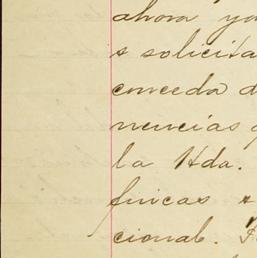 ahora ya
s solicita
conceda d
nencias
la Hda.
fincas
cional.